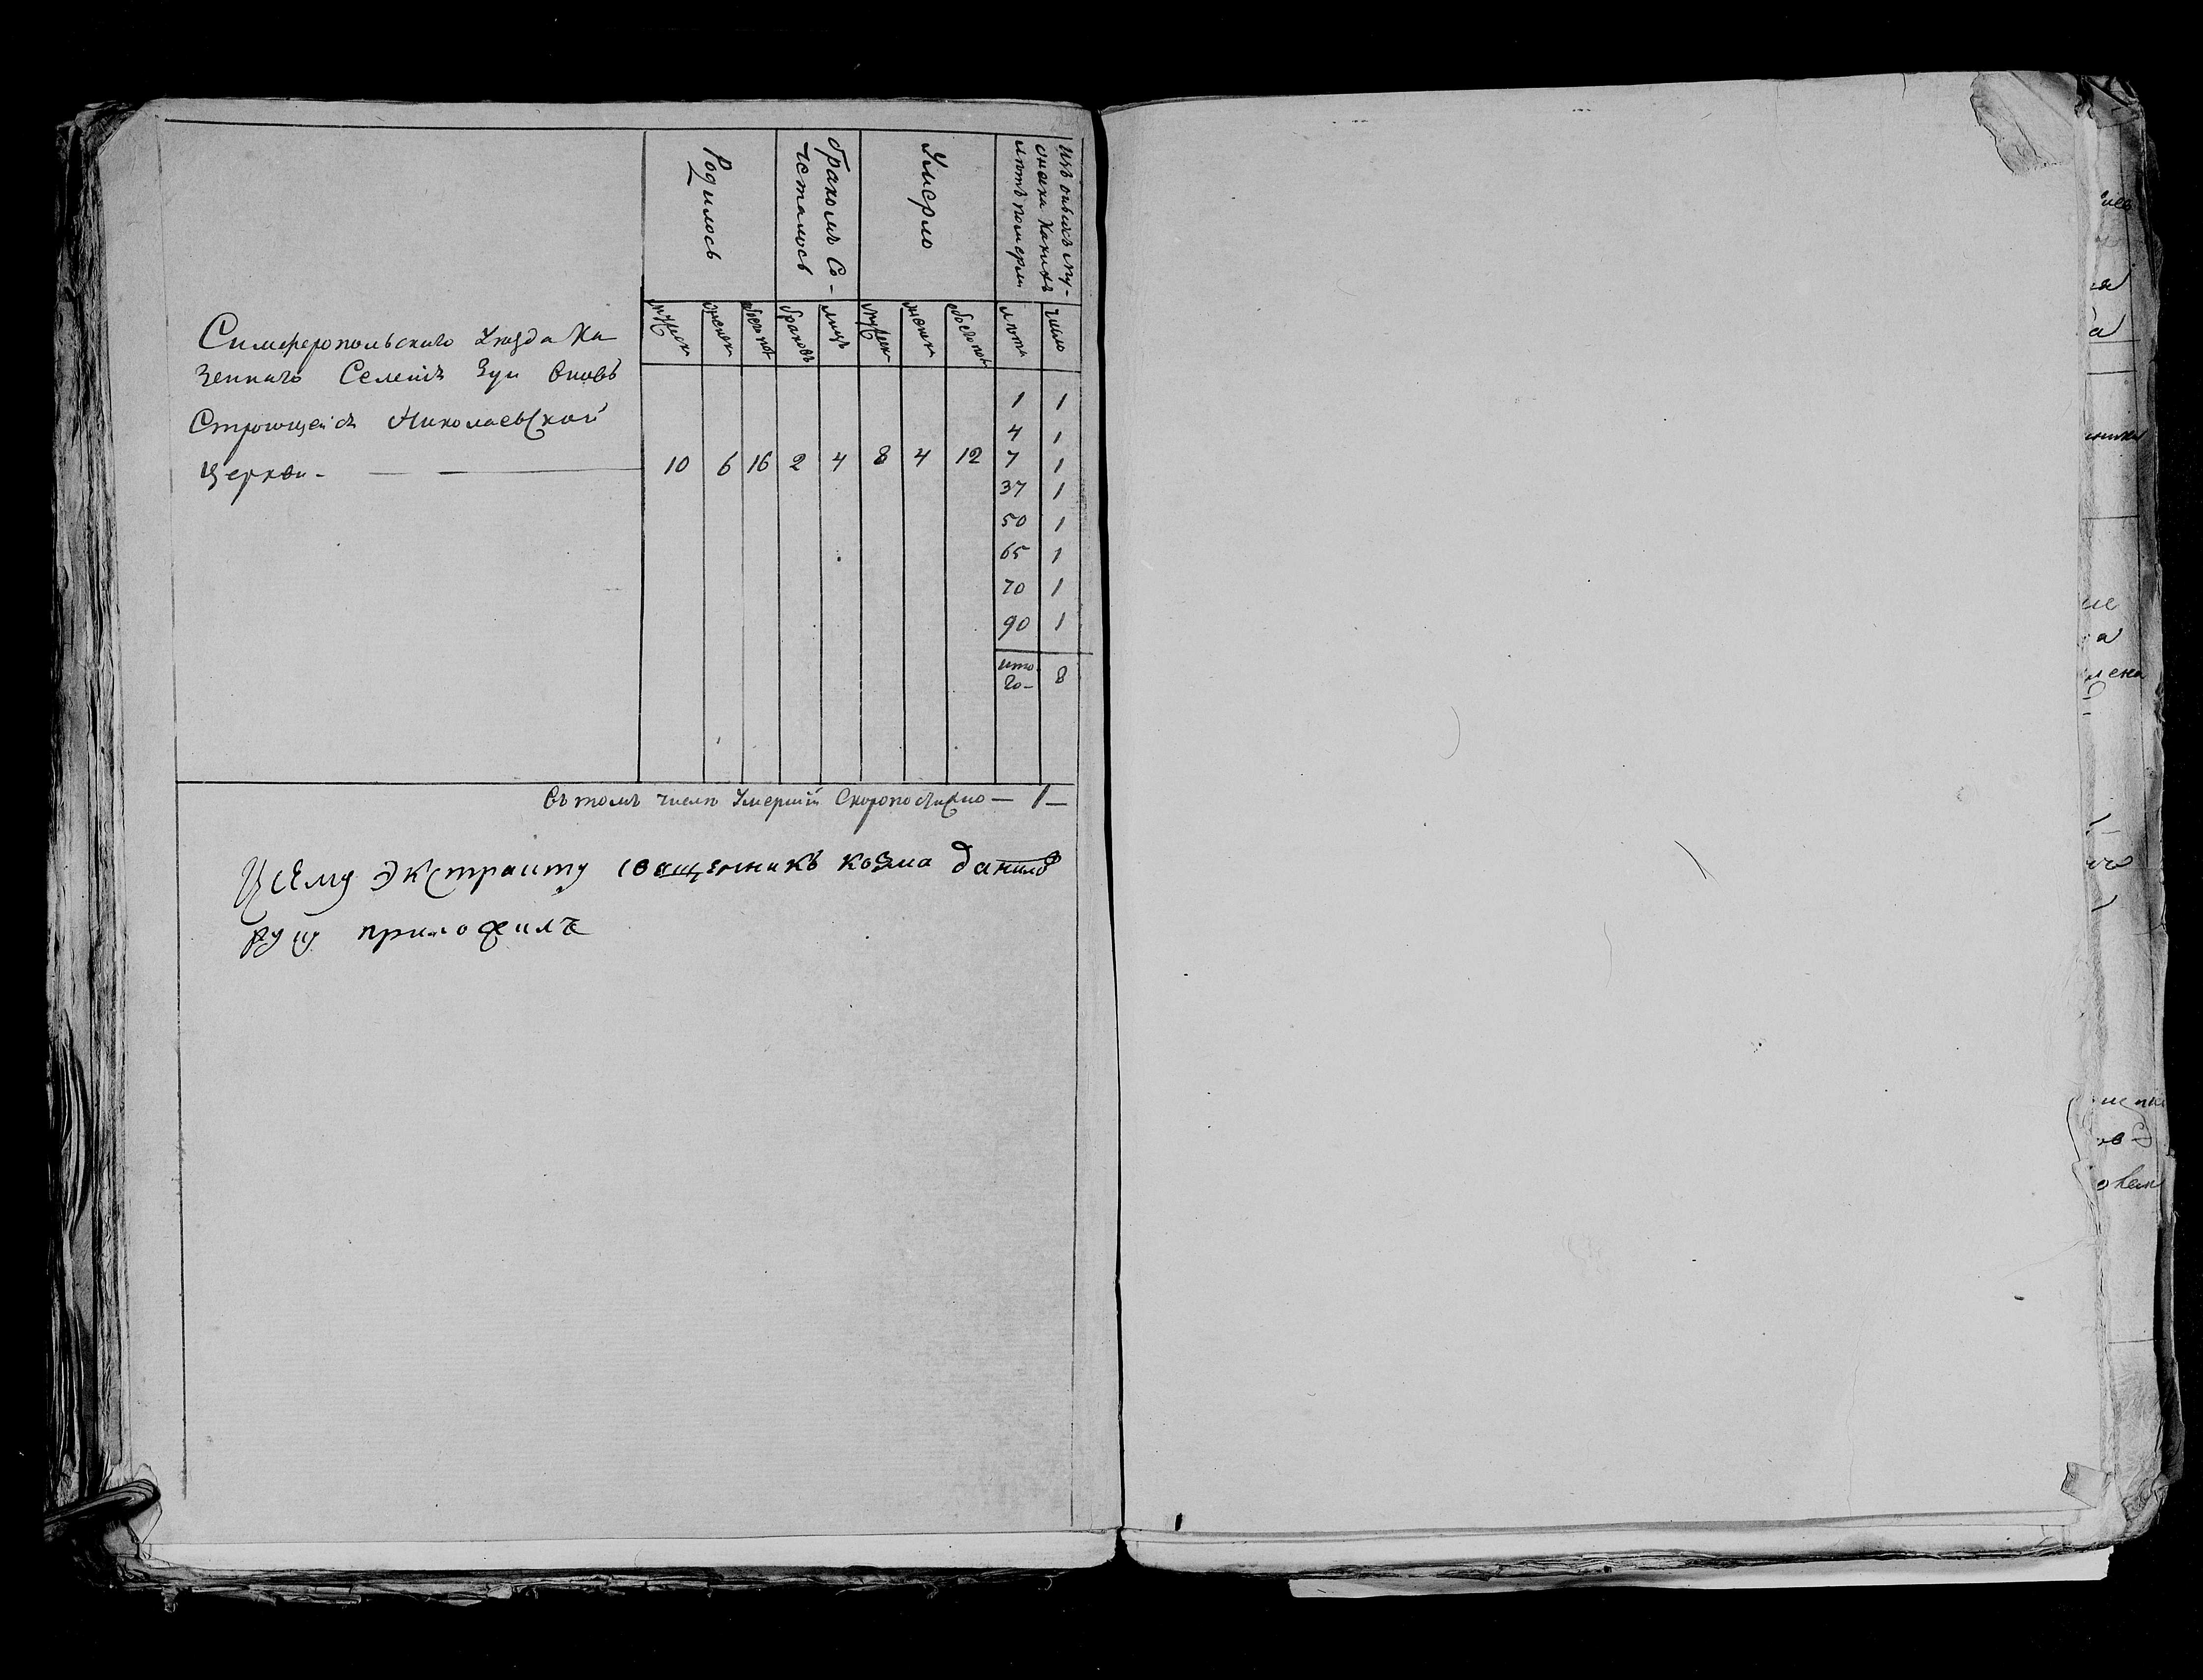 Родилось
бракомъ Со-
четалось
Умерло
изъ оныхъ му-
жеска какихъ
лѣтъ померли
мужеск
женск
обоег пол
браковъ
лицъ
мужеск
женск
обоего пол
лѣта
число
Симферопольскаго Уѣзда Ка
зеннаго Селенія Зуи вновь
Строющейся Николаевской
Церкви - 10 6 16 2 4 8 4 12
1 1
4 1
7 1
37 1
50 1
65 1
70 1
90 1
ито
го- 8
въ томъ числѣ Умершій Скоропостижно — 1 —
Ксему экстракту священникъ козма данило
руку приложилъ